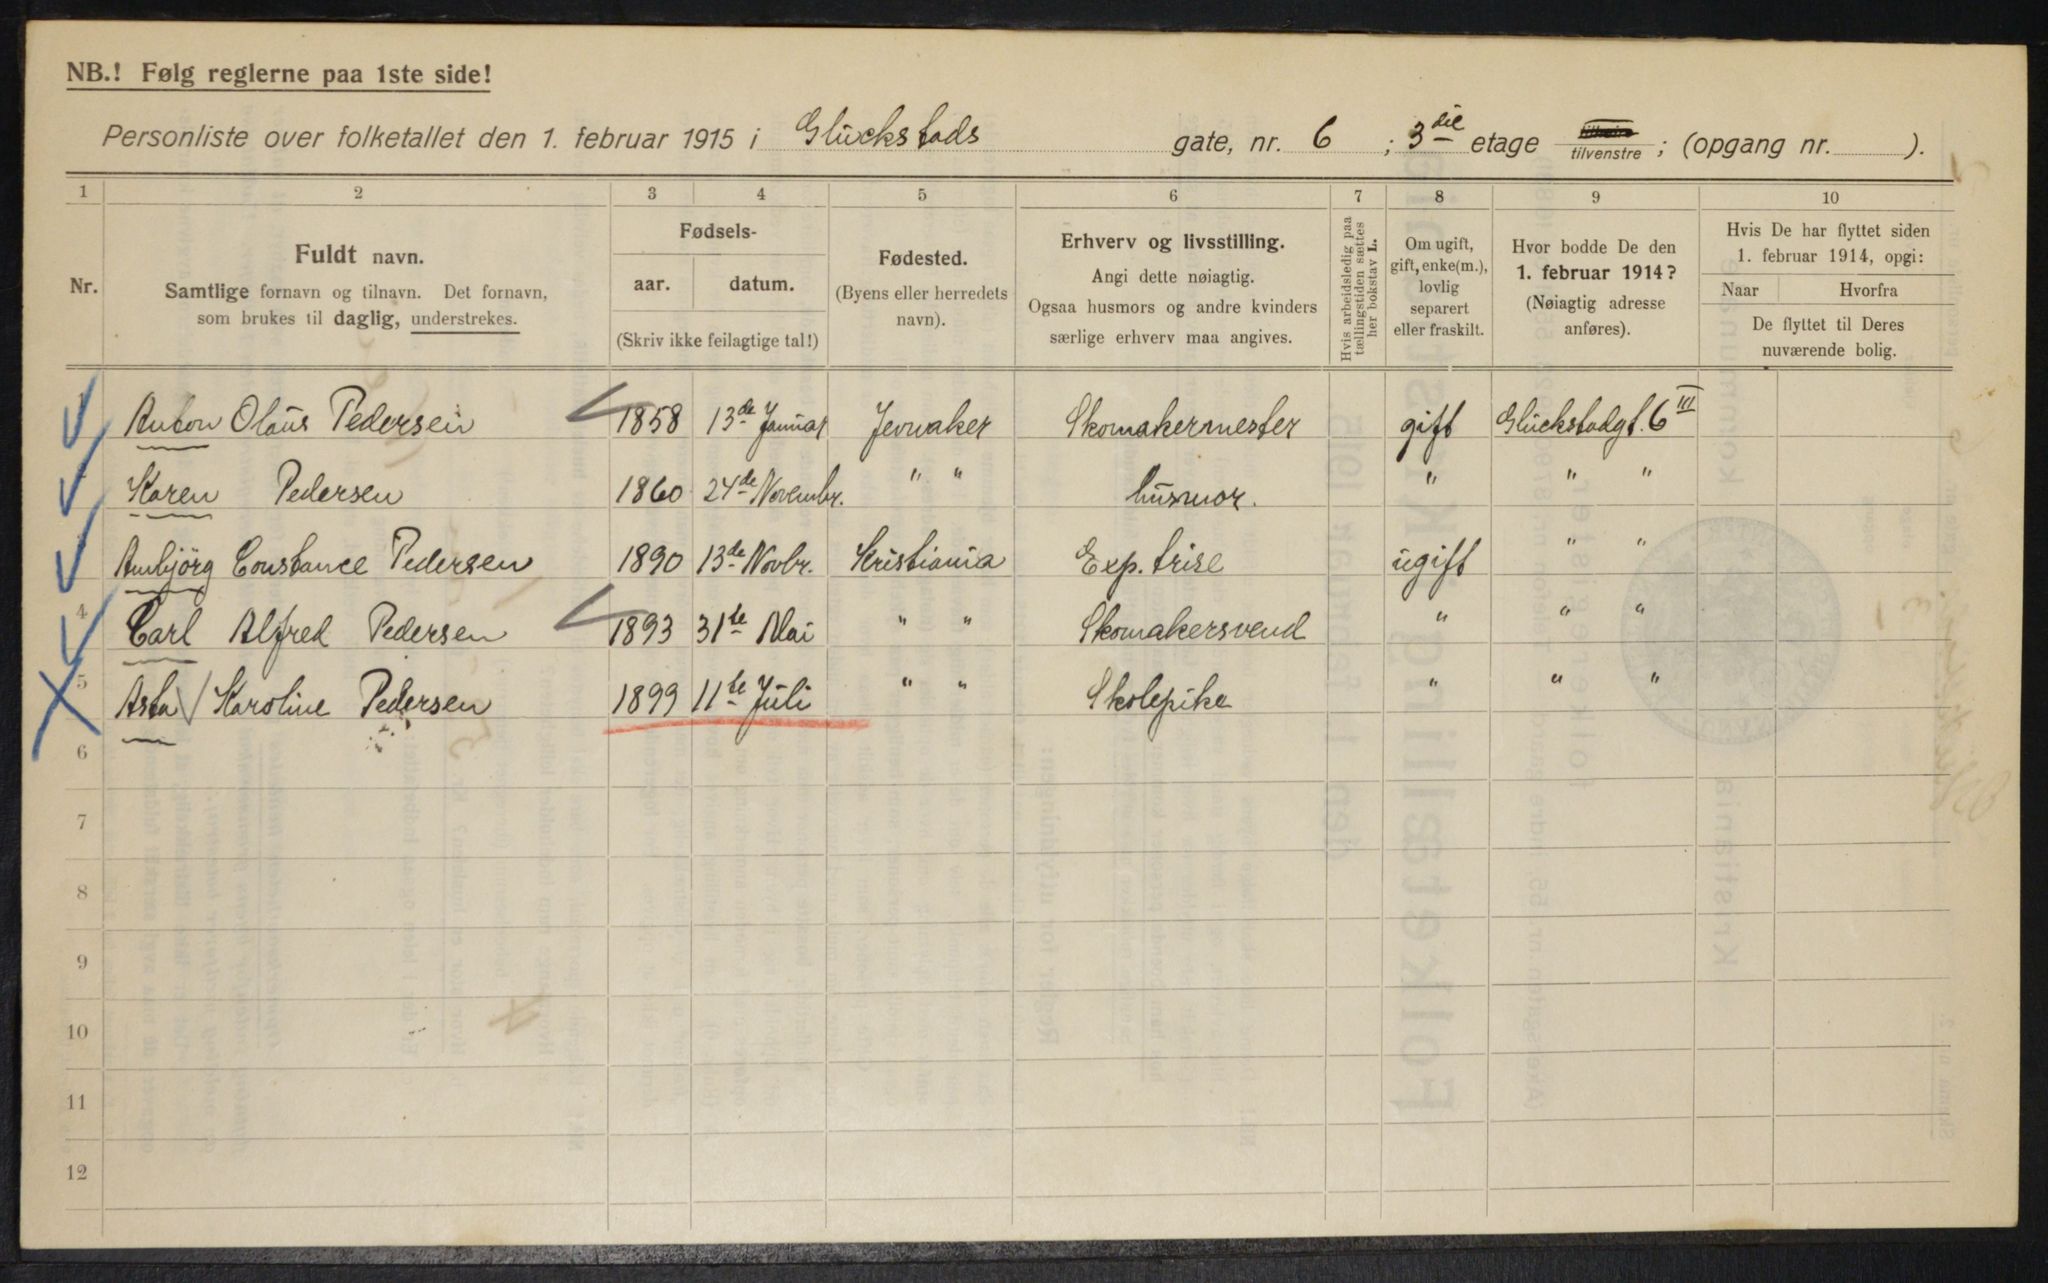 NB.! Følg reglerne paa 1ste side!
Personliste over folketallet den 1. februar 1915 i Glückstads gate, nr. 6 ; 3die etage tilvenstre ; (opgang nr. ).
1 2 3 4 5 6 7 8 9 10
Nr.
Fuldt navn.
Samtlige fornavn og tilnavn. Det fornavn,
som brukes til daglig, understrekes.
Fødsels-
aar. datum.
(Skriv ikke feilagtige tal!)
Fødested.
(Byens eller herredets
navn).
Erhverv og livsstilling.
Angi dette nøiagtig.
Ogsaa husmors og andre kvinders
særlige erhverv maa angives.
Hvis arbeidsledig paa
tællingstiden sættes
her bokstav L.
Om ugift,
gift, enke(m.),
lovlig
separert
eller fraskilt.
Hvor bodde De den
1. februar 1914?
(Nøiagtig adresse
anføres).
Hvis De har flyttet siden
1. februar 1914, opgi:
Naar Hvorfra
De flyttet til Deres
nuværende bolig.
Anton Olaus Pedersen 1858 13de Januar Jevnaker Skomakermester gift Glückstadgt. 6 III
Karen Pedersen 1860 24de Novembr. " " husmor. " " "
Annbjörg Constance Pedersen 1890 13de Novbr. Kristiania Exp. trise ugift " "
4 Carl Alfred Pedersen 1893 31te Mai " " Skomakersvend " " "
5 Asta Karoline Pedersen 1899 11te Juli " " Skolepike " " "
6
7
8
9
10
11
12